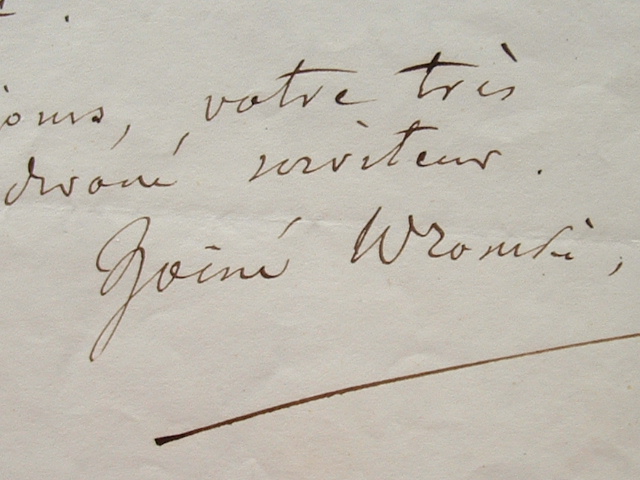 votre très
dévoué serviteur.
Hoëné Wronski,